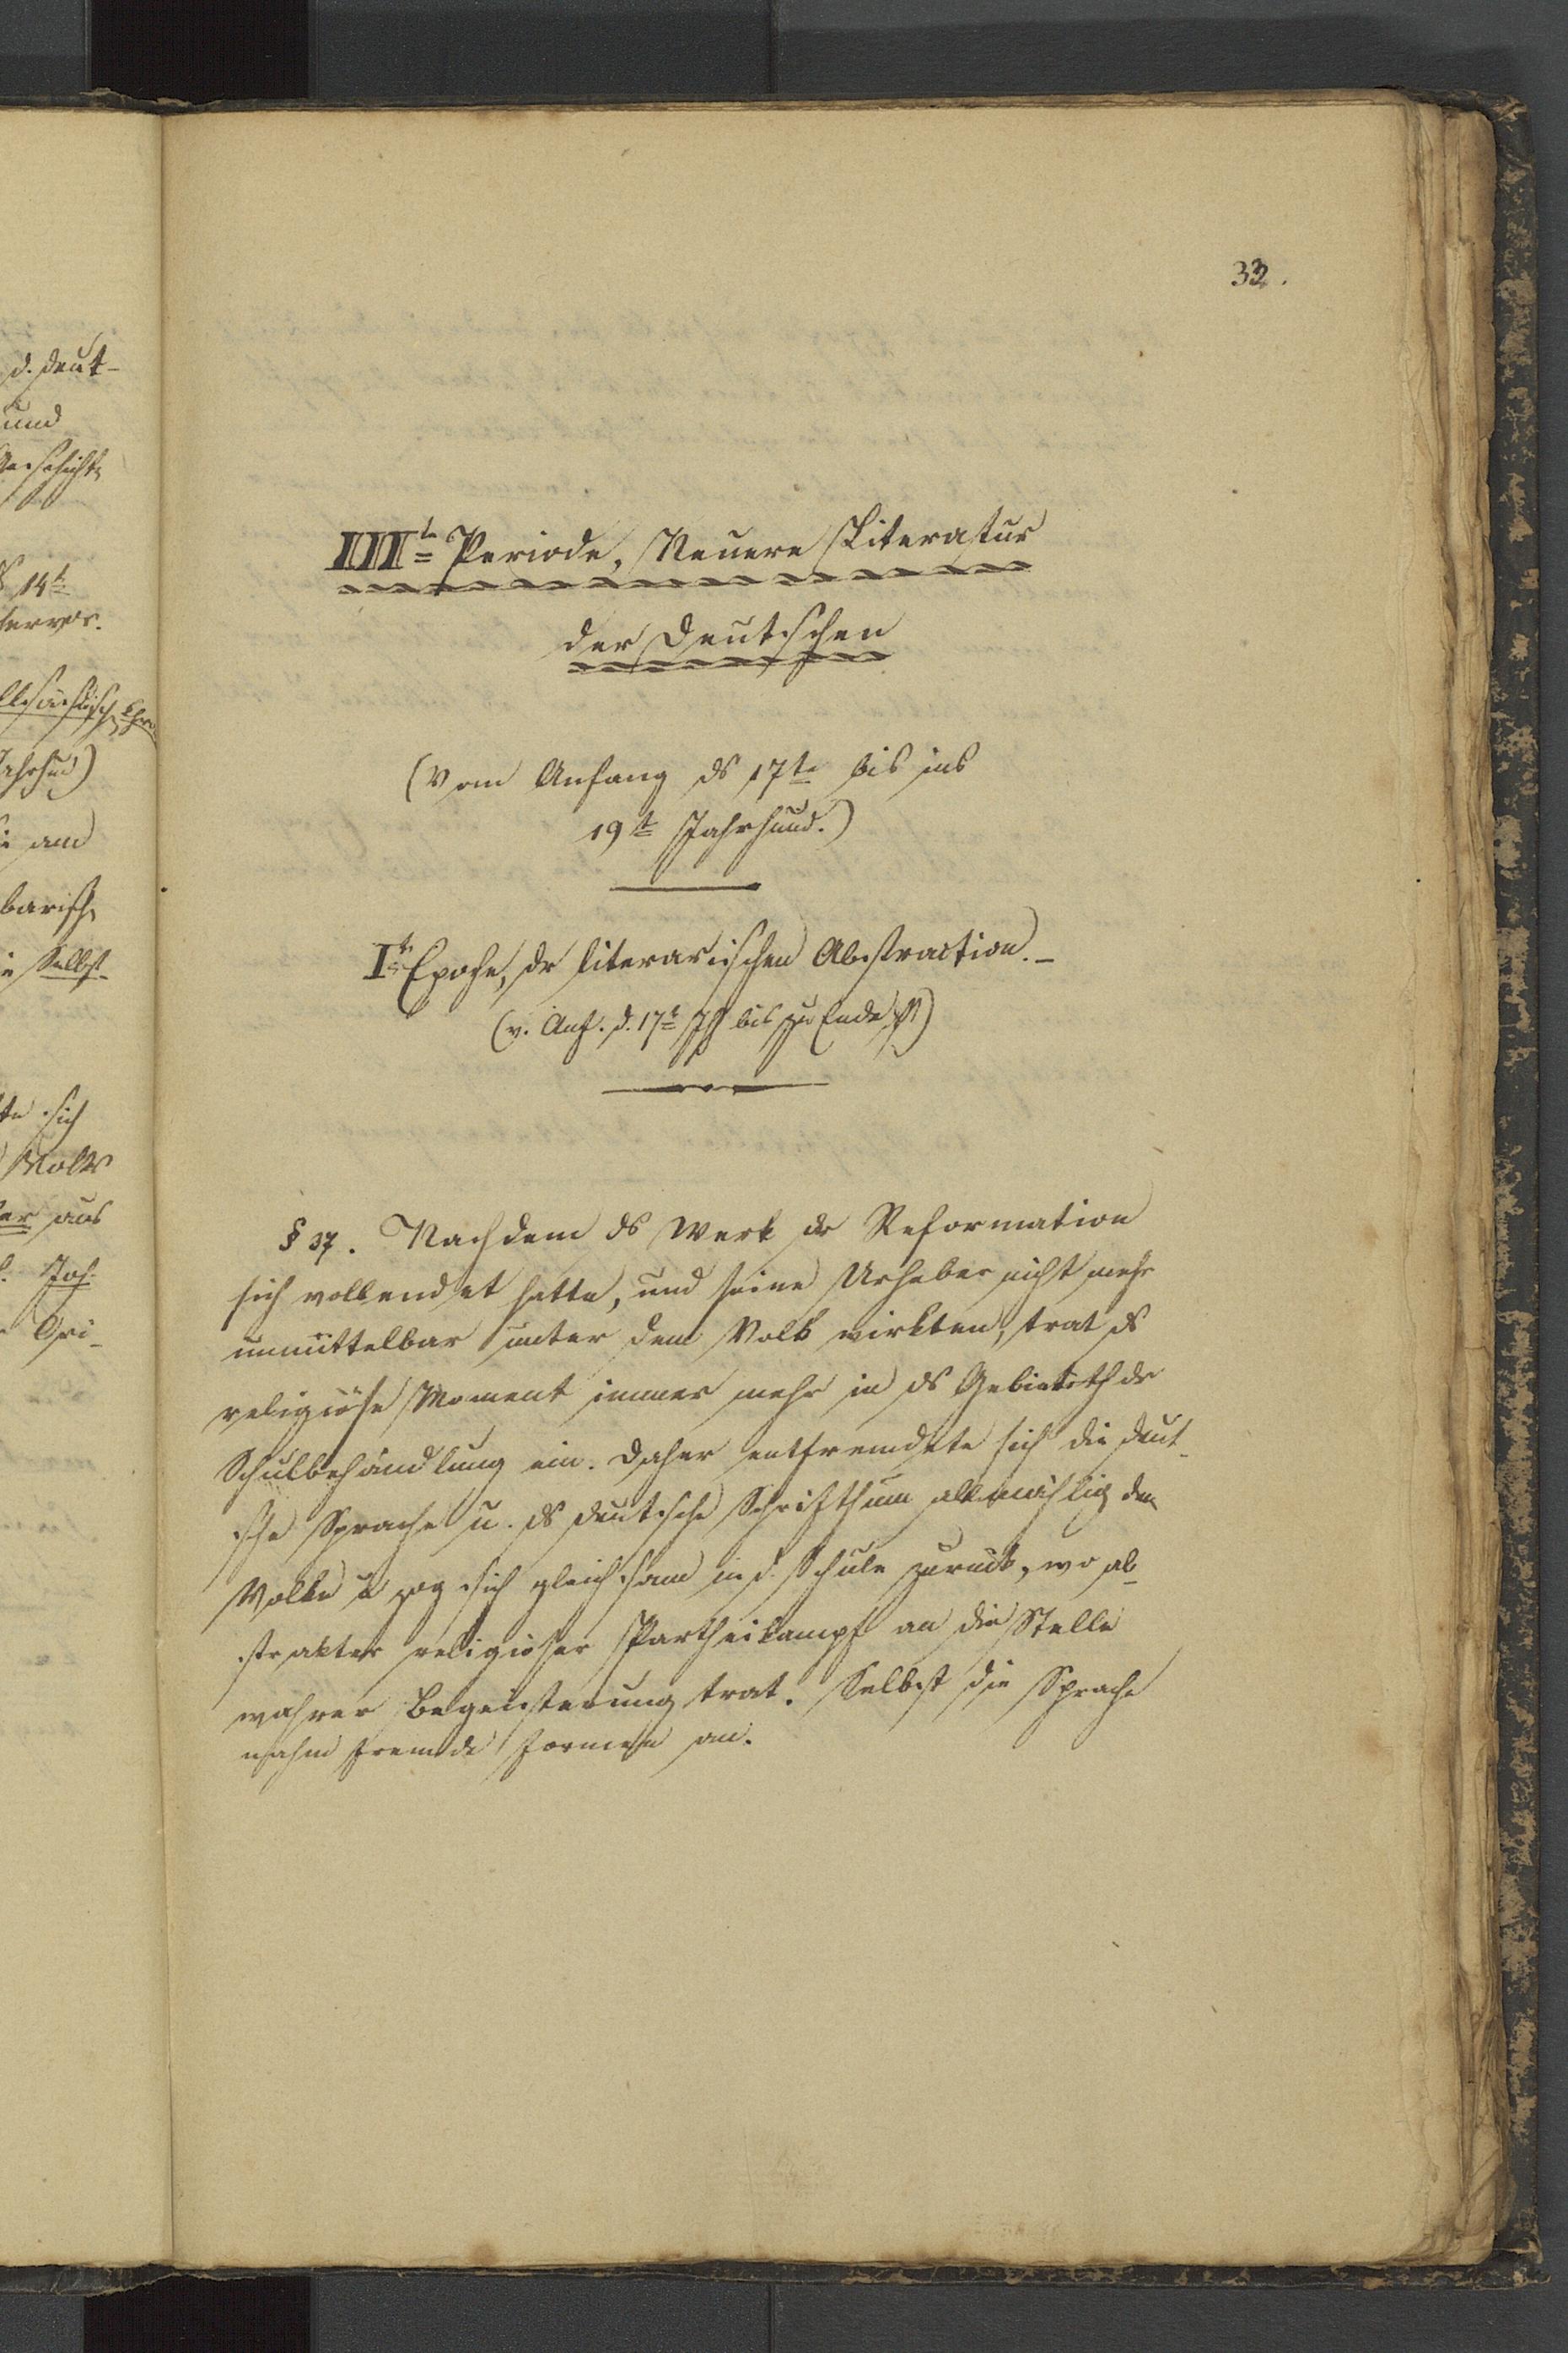 d. deut-
und
Geschichte
14t
hervor.
Jahrhund)
am
barisch
Selbst-
sich
Volks
aus
Joh.
Ori-
32.
IIIte Periode, Neuere Literatur
der Deutschen
(Vom Anfang ds 17te bis ins
19te Jahrhund.)
Ite Epoche, dr literarischen Abstraction. -
(v. Anf. d. 17t Jh bis zu Ende)
§ 37. Nachdem ds Werk dr Reformation
sich vollendet hatte, und seine Urheber nicht mehr
unmittelbar unter dem Volk wirkten, trat ds
religiöse Moment immer mehr in ds Gebieth dr
Schulbehandlung ein. Daher entfremdete sich die deut-
sche Sprache u. ds deutsche Schriftthum allmählig dem
Volke u zog sich gleichsam in d. Schule zurück, wo ab-
strakter religiöser Partheikampf an die Stelle
wahrer Begeisterung trat. Selbst die Sprache
nahm fremde Formen an.